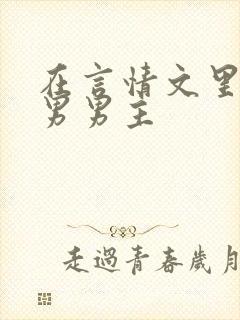 在言情文里
男男主
走過青春歲月